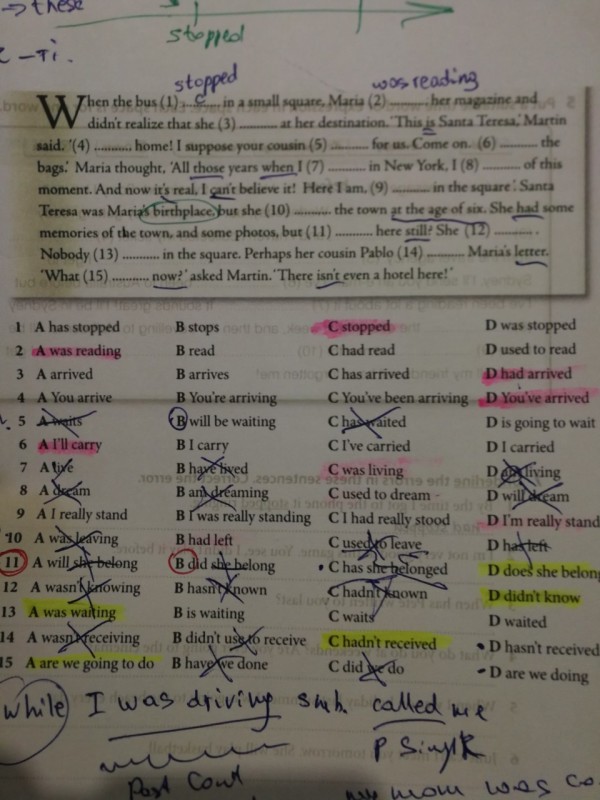 →these
stopped
stopped was reading
When the bus (1) ....c.... in a small square, Maria (2) .......... her magazine and
didn't realize that she (3) .......... at her destination. 'This is Santa Teresa,' Martin
said. '(4) .......... home! I suppose your cousin (5) .......... for us. Come on. (6) .......... the
bags.' Maria thought, 'All those years when I (7) .......... in New York, I (8) .......... of this
moment. And now it's real, I can't believe it! Here I am, (9) .......... in the square'. Santa
Teresa was Maria's birthplace, but she (10) .......... the town at the age of six. She had some
memories of the town, and some photos, but (11) .......... here still? She (12) .......... .
Nobody (13) .......... in the square. Perhaps her cousin Pablo (14) .......... Maria's letter.
'What (15) .......... now?' asked Martin. 'There isn't even a hotel here!'
1 A has stopped B stops C stopped D was stopped
2 A was reading B read C had read D used to read
3 A arrived B arrives C has arrived D had arrived
4 A You arrive B You're arriving C You've been arriving D You've arrived
5 A waits B will be waiting C has waited D is going to wait
6 A I'll carry B I carry C I've carried D I carried
7 A live B have lived C was living D am living
8 A dream B am dreaming C used to dream D will dream
9 A I really stand B I was really standing C I had really stood D I'm really stand
10 A was leaving B had left C used to leave D has left
11 A will she belong B did she belong C has she belonged D does she belong
12 A wasn't knowing B hasn't known C hadn't known D didn't know
13 A was waiting B is waiting C waits D waited
14 A wasn't receiving B didn't use to receive C hadn't received D hasn't received
15 A are we going to do B have we done C did we do D are we doing
while I was driving smb. called me
Past Cont
my mom was co